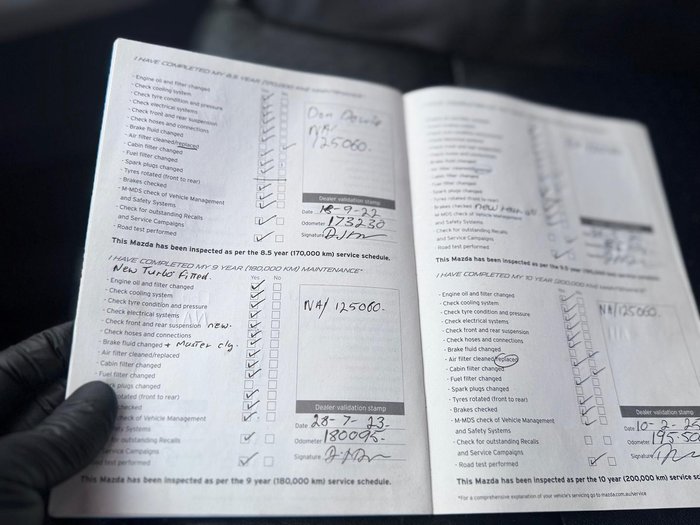 I HAVE COMPLETED MY 8.5 YEAR (170,000 KM) MAINTENANCE*
Yes No
- Engine oil and filter changed
- Check cooling system
- Check tyre condition and pressure
- Check electrical systems
- Check front and rear suspension
- Check hoses and connections
- Brake fluid changed
- Air filter cleaned/replaced
- Cabin filter changed
- Fuel filter changed
- Spark plugs changed
- Tyres rotated (front to rear)
- Brakes checked
- M-MDS check of Vehicle Management
and Safety Systems
- Check for outstanding Recalls
and Service Campaigns
- Road test performed
NA/
125060.
Dealer validation stamp
Date 18-9-22
Odometer 173230
Signature
This Mazda has been inspected as per the 8.5 year (170,000 km) service schedule.
I HAVE COMPLETED MY 9 YEAR (180,000 KM) MAINTENANCE*
New Turbo Fitted.
Yes No
- Engine oil and filter changed
- Check cooling system
- Check tyre condition and pressure
- Check electrical systems
- Check front and rear suspension new.
- Check hoses and connections
- Brake fluid changed + Master cly.
- Air filter cleaned/replaced
- Cabin filter changed
- Fuel filter changed
plugs changed
rotated (front to rear)
checked
check of Vehicle Management
Systems
for outstanding Recalls
Service Campaigns
test performed
NA/125060.
Dealer validation stamp
Date 28-7-23.
Odometer 180095.
Signature
This Mazda has been inspected as per the 9 year (180,000 km) service schedule.
- Tyres rotated (front to rear)
- Brakes checked new rear
- M-MDS check of Vehicle Management
and Safety Systems
- Check for outstanding Recalls
and Service Campaigns
- Road test performed
This Mazda has been inspected as per the 9.5 year
I HAVE COMPLETED MY 10 YEAR (200,000 KM) MAINTENANCE*
- Engine oil and filter changed
- Check cooling system
- Check tyre condition and pressure
- Check electrical systems
- Check front and rear suspension
- Check hoses and connections
- Brake fluid changed
- Air filter cleaned/replaced
- Cabin filter changed
- Fuel filter changed
- Spark plugs changed
- Tyres rotated (front to rear)
- Brakes checked
- M-MDS check of Vehicle Management
and Safety Systems
- Check for outstanding Recalls
and Service Campaigns
- Road test performed
NA/125060.
Dealer validation stamp
Date 10-2-25
Odometer 19550
Signature
This Mazda has been inspected as per the 10 year (200,000 km) service schedule.
*For a comprehensive explanation of your vehicle's servicing go to mazda.com.au/service